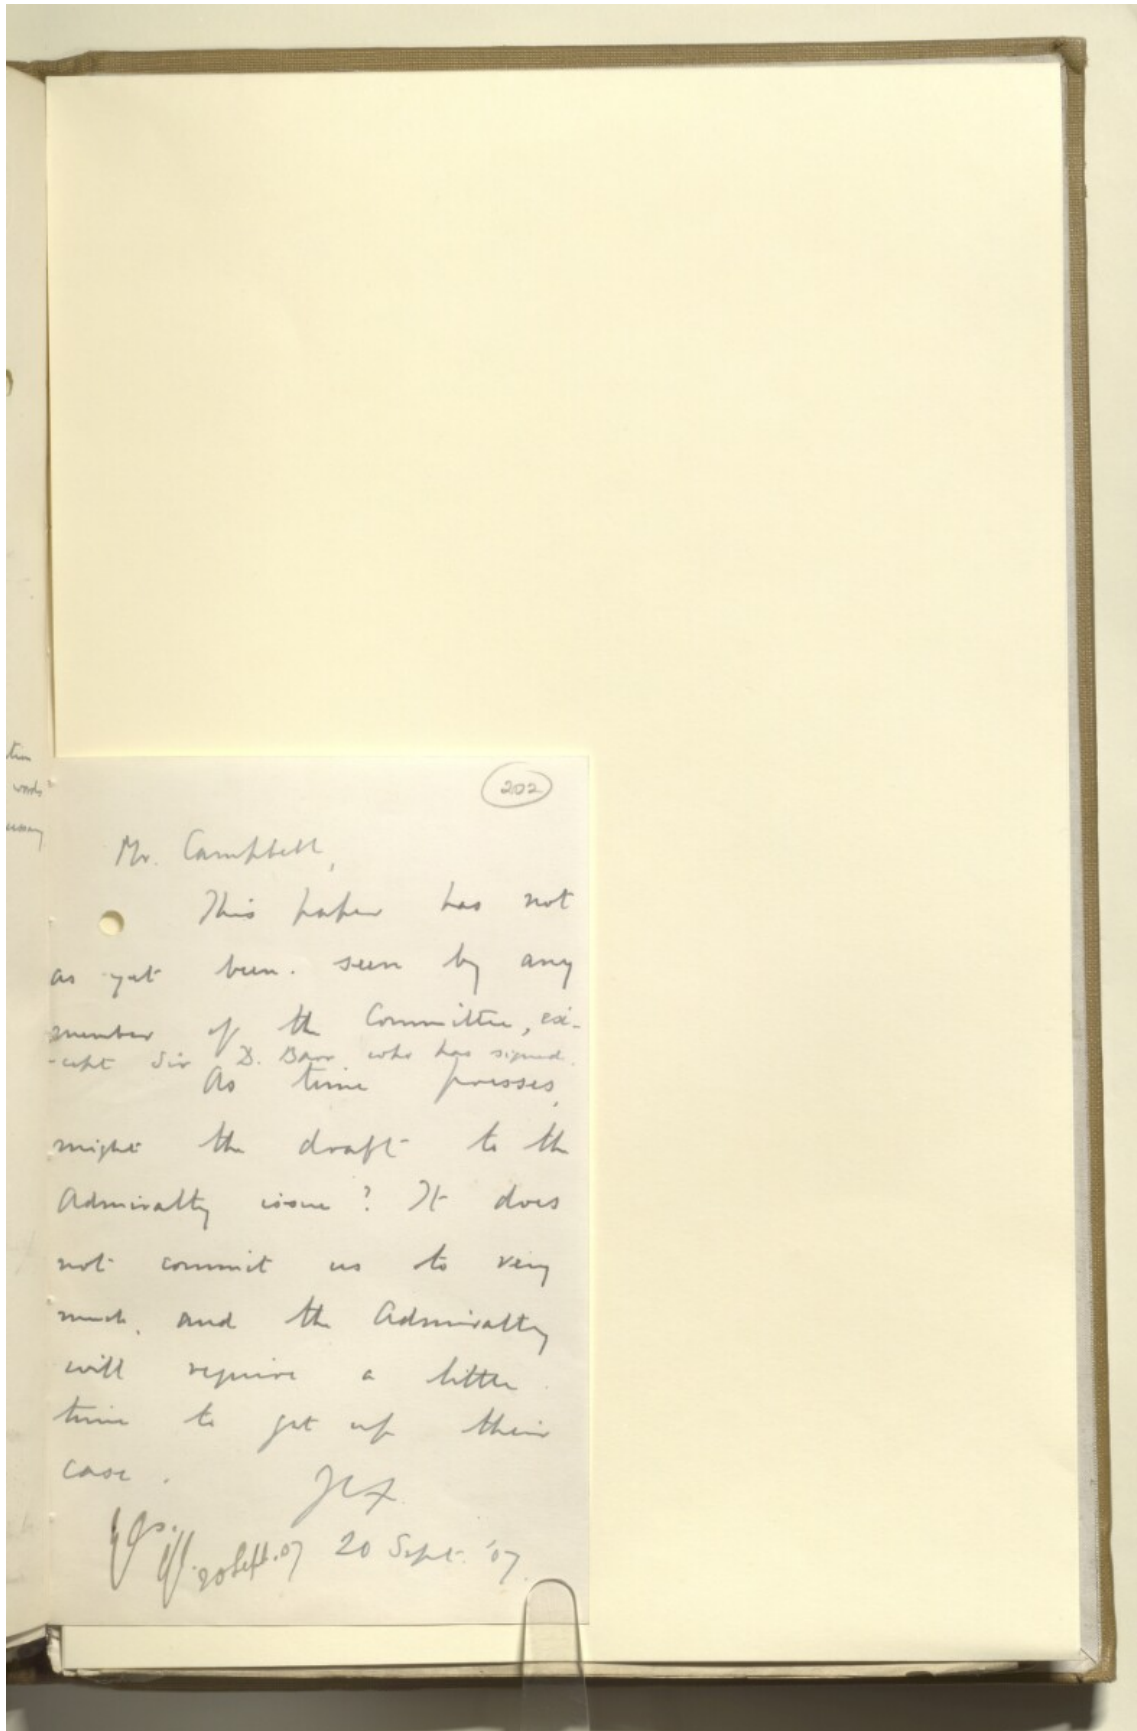 202
Mr. Campbell,
This paper has not
as yet been seen by any
member of the Committee, ex-
-cept Sir D. Barr who has signed.
As time presses,
might the draft to the
Admiralty issue? It does
not commit us to very
much, and the Admiralty
will require a little
time to get up their
case.
20 Sept. '07
20 Sept. 07
tion
words"